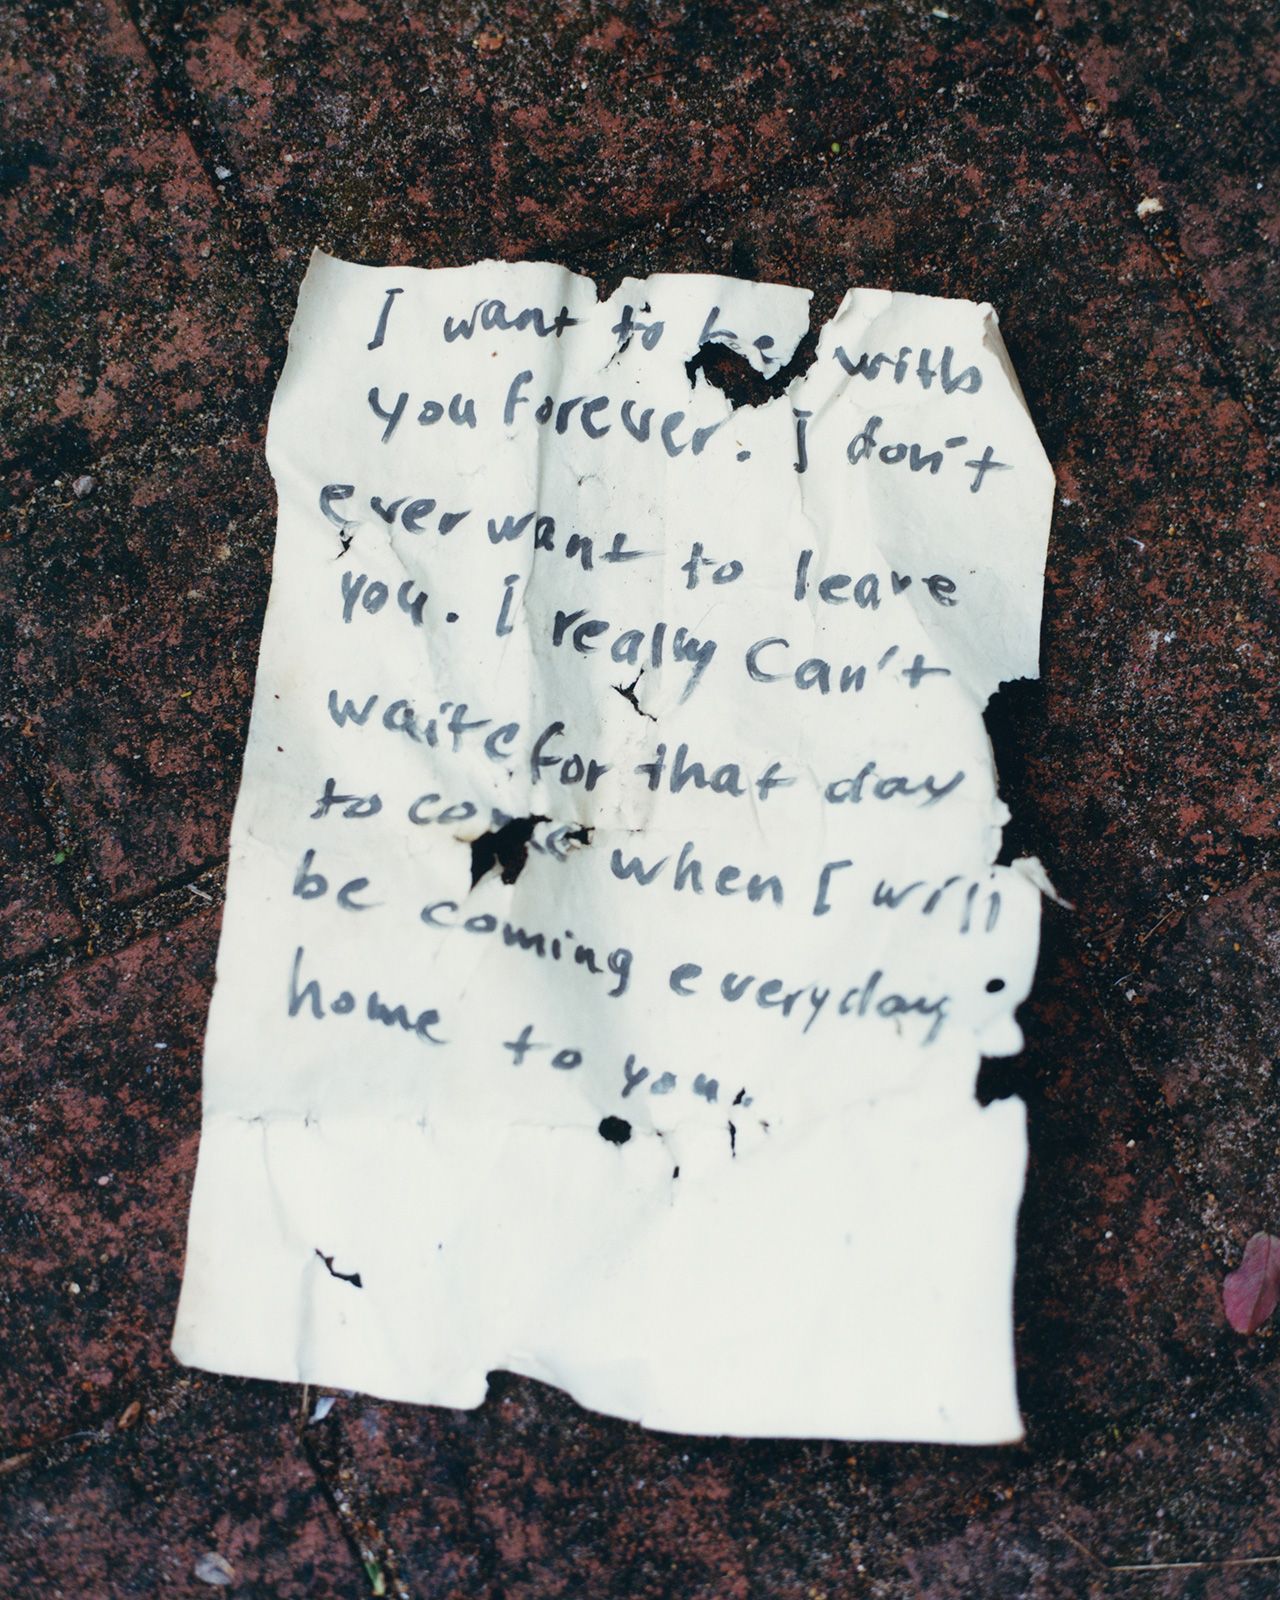 I want to be with
you forever. I don't
ever want to leave
you. I really can't
waite for that day
to come when I will
be coming everyday
home to you.